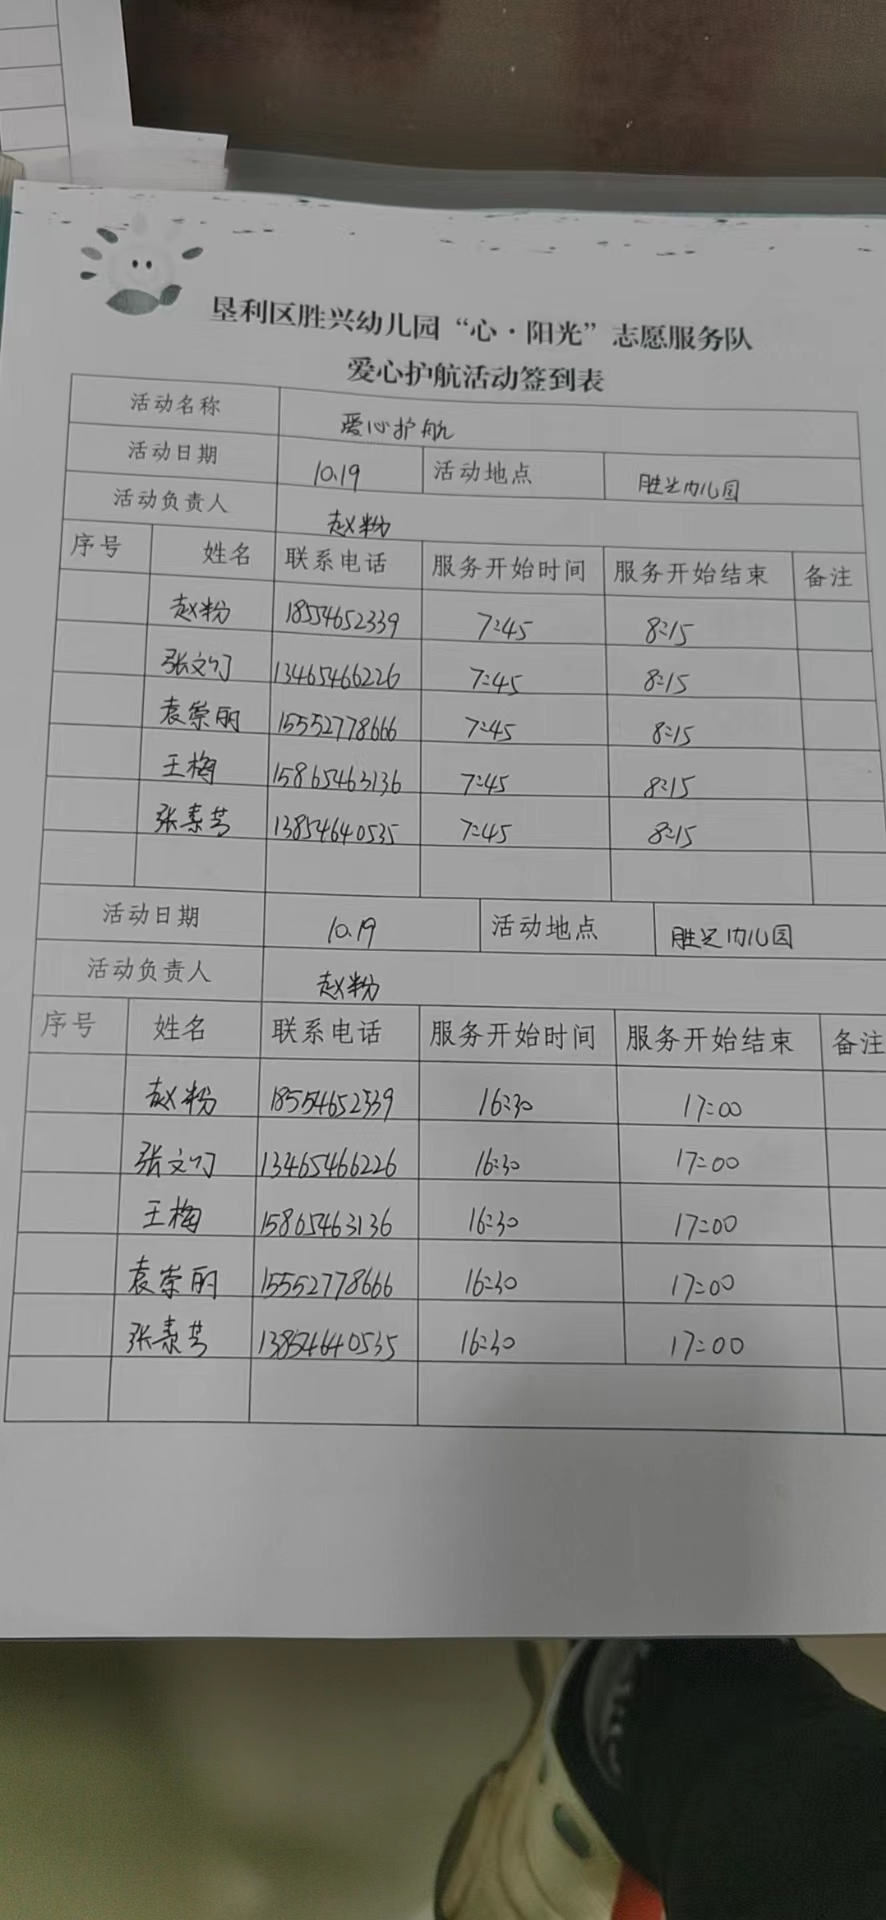 垦利区胜兴幼儿园“心·阳光”志愿服务队
爱心护航活动签到表
活动名称 爱心护航
活动日期 10.19 活动地点 胜兴幼儿园
活动负责人 赵粉
序号 姓名 联系电话 服务开始时间 服务开始结束 备注
赵粉 18554652339 7:45 8:15
张文 13465466226 7:45 8:15
袁崇丽 15552778666 7:45 8:15
王梅 15865463136 7:45 8:15
张素芳 13854640535 7:45 8:15
活动日期 10.19 活动地点 胜兴幼儿园
活动负责人 赵粉
序号 姓名 联系电话 服务开始时间 服务开始结束 备注
赵粉 18554652339 16:30 17:00
张文 13465466226 16:30 17:00
王梅 15865463136 16:30 17:00
袁崇丽 15552778666 16:30 17:00
张素芳 13854640535 16:30 17:00